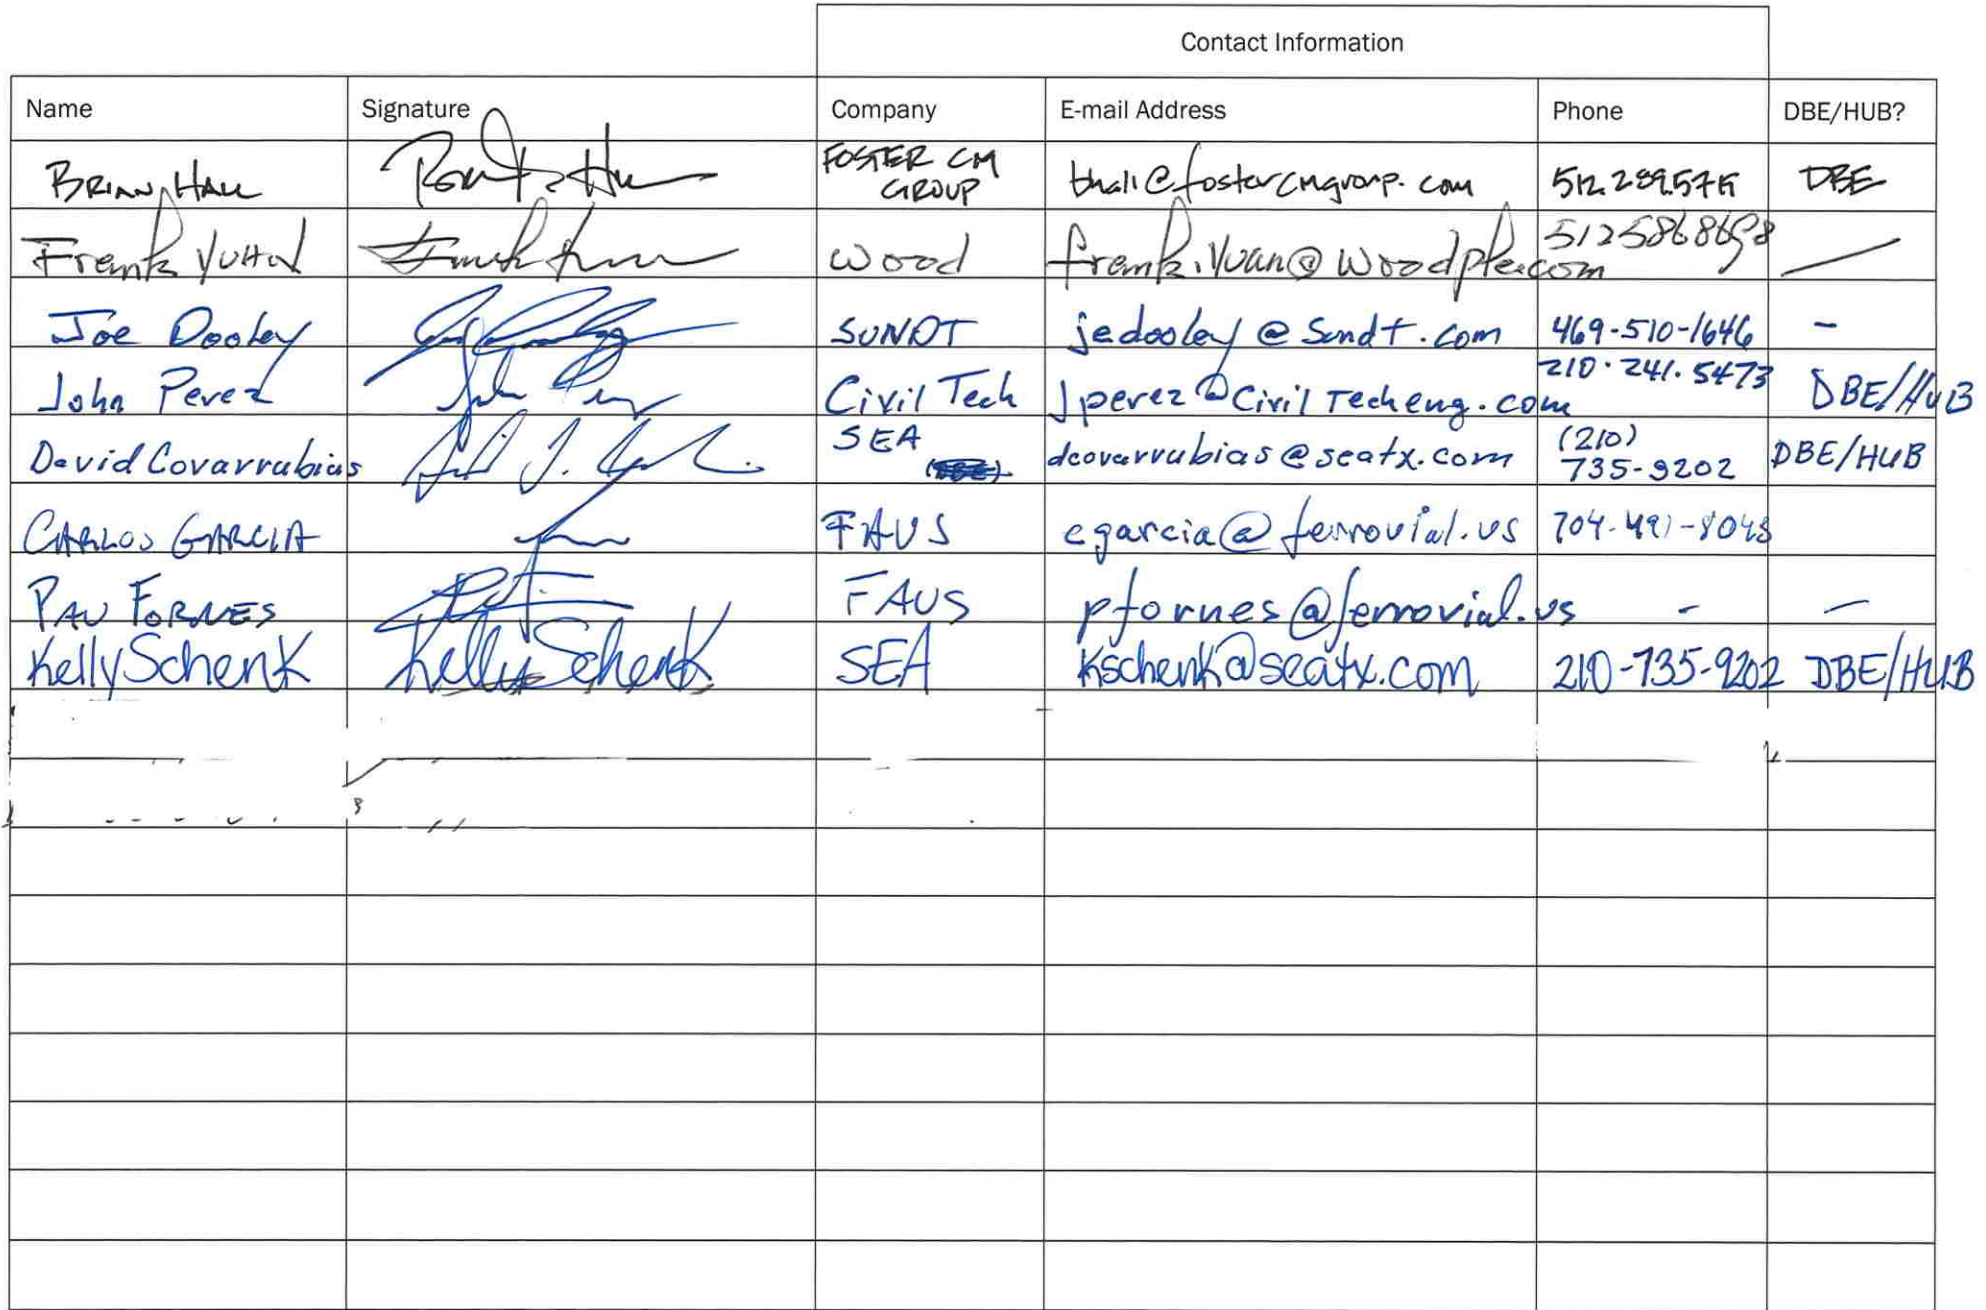 Contact Information
Name Signature Company E-mail Address Phone DBE/HUB?
BRIAN HALL FOSTER CM GROUP bhall@fostercmgroup.com DBE
Frank YUAN Wood frank.yuan@woodplc.com 5125868698 —
Joe Dooley SUNDT jedooley@Sundt.com 469-510-1646 -
John Perez Civil Tech Jperez@CivilTecheng.com 210.241.5473 DBE/HUB
David Covarrubias SEA dcovarrubias@seatx.com (210) 735-9202 DBE/HUB
CARLOS GARCIA FAUS cgarcia@ferrovial.us 704-491-8048
PAU FORNES FAUS pfornes@ferrovial.us - —
Kelly Schenk Kelly Schenk SEA Kschenk@seatx.com 210-735-9202 DBE/HUB